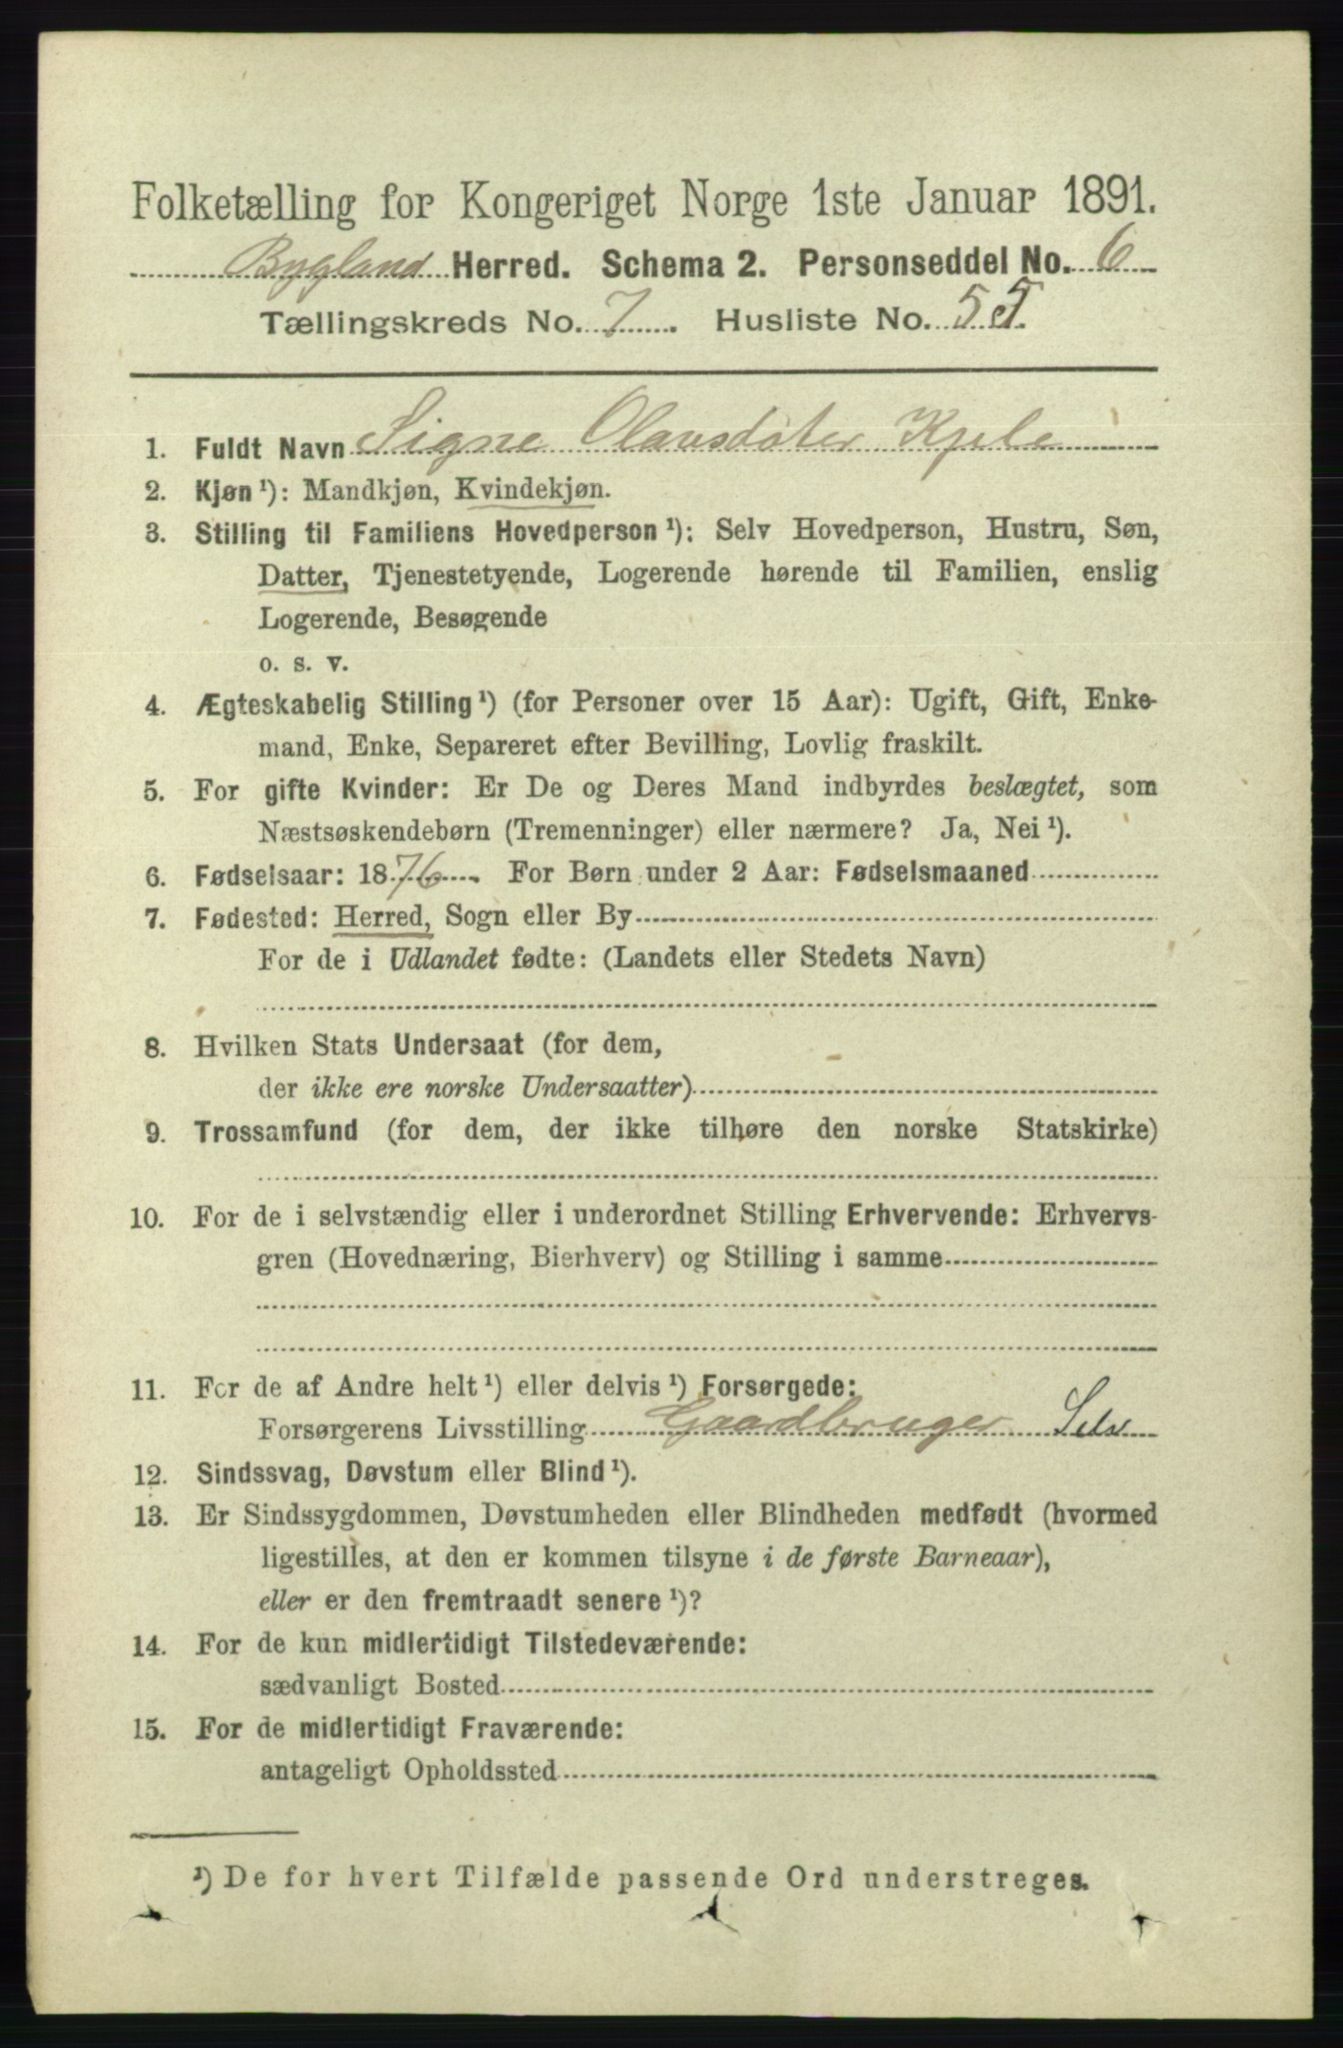 Folketælling for Kongeriget Norge 1ste Januar 1891.
Bygland Herred. Schema 2. Personseddel No. 6
Tællingskreds No. 7. Husliste No. 55.
1. Fuldt Navn Signe Olavsdoter Kjele
2. Kjøn ¹): Mandkjøn, Kvindekjøn.
3. Stilling til Familiens Hovedperson ¹): Selv Hovedperson, Hustru, Søn,
Datter, Tjenestetyende, Logerende hørende til Familien, enslig
Logerende, Besøgende
o. s. v.
4. Ægteskabelig Stilling ¹) (for Personer over 15 Aar): Ugift, Gift, Enke-
mand, Enke, Separeret efter Bevilling, Lovlig fraskilt.
5. For gifte Kvinder: Er De og Deres Mand indbyrdes beslægtet, som
Næstsøskendebørn (Tremenninger) eller nærmere? Ja, Nei ¹).
6. Fødselsaar: 1876. For Børn under 2 Aar: Fødselsmaaned
7. Fødested: Herred, Sogn eller By
For de i Udlandet fødte: (Landets eller Stedets Navn)
8. Hvilken Stats Undersaat (for dem,
der ikke ere norske Undersaatter)
9. Trossamfund (for dem, der ikke tilhøre den norske Statskirke)
10. For de i selvstændig eller i underordnet Stilling Erhvervende: Erhvervs-
gren (Hovednæring, Bierhverv) og Stilling i samme
11. For de af Andre helt ¹) eller delvis ¹) Forsørgede:
Forsørgerens Livsstilling Gaardbruger Selv
12. Sindssvag, Døvstum eller Blind ¹).
13. Er Sindssygdommen, Døvstumheden eller Blindheden medfødt (hvormed
ligestilles, at den er kommen tilsyne i de første Barneaar),
eller er den fremtraadt senere ¹)?
14. For de kun midlertidigt Tilstedeværende:
sædvanligt Bosted
15. For de midlertidigt Fraværende:
antageligt Opholdssted
¹) De for hvert Tilfælde passende Ord understreges.